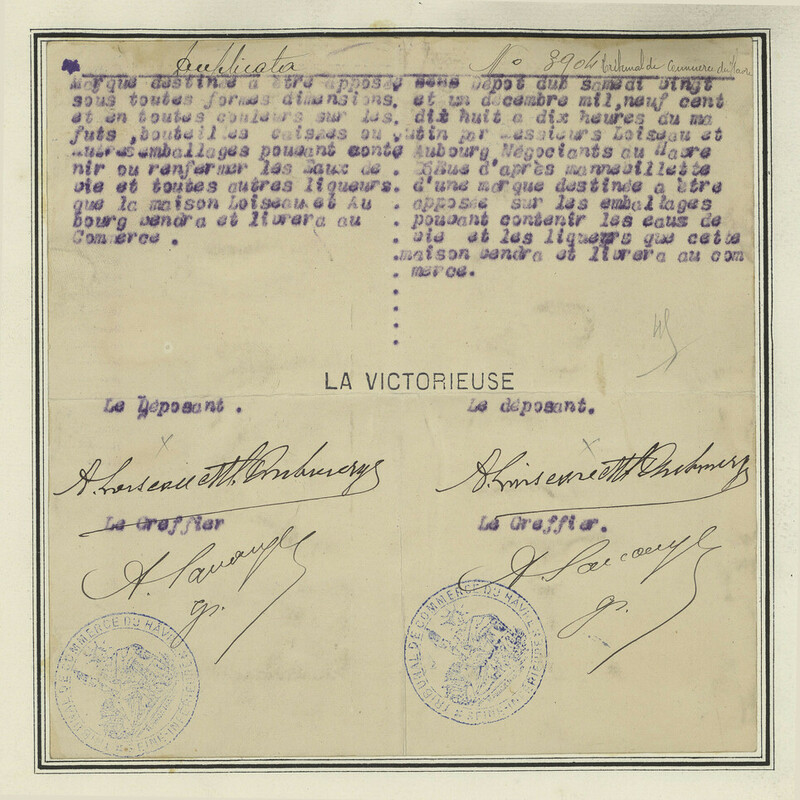 Duplicata
N° 3904 Tribunal de Commerce du Havre
Marque destinée à être apposée
sous toutes formes dimensions,
et en toutes couleurs sur les
futs ,bouteilles caisses ou
autresemballages pouvant conte
nir ou renfermer les Eaux de
vie et toutes autres liqueurs
que la maison Loiseau et Au
bourg vendra et livrera au
Commerce .
Dépot du samedi vingt
et un décembre mil,neuf cent
dix huit à dix heures du ma
tin par Messieurs Loiseau et
Aubourg Négociants au Havre
Rue d'après mannevillette
d'une marque destinée a être
apposée sur les emballages
pouvant contenir les eaux de
vie et les liqueurs que cette
maison vendra et livrera au com
merce.
LA VICTORIEUSE
Le Déposant .
Le déposant.
Le Greffier
Le Greffier.
TRIBUNAL DE COMMERCE DU HAVRE
SEINE-INFÉRIEURE
TRIBUNAL DE COMMERCE DU HAVRE
SEINE-INFÉRIEURE